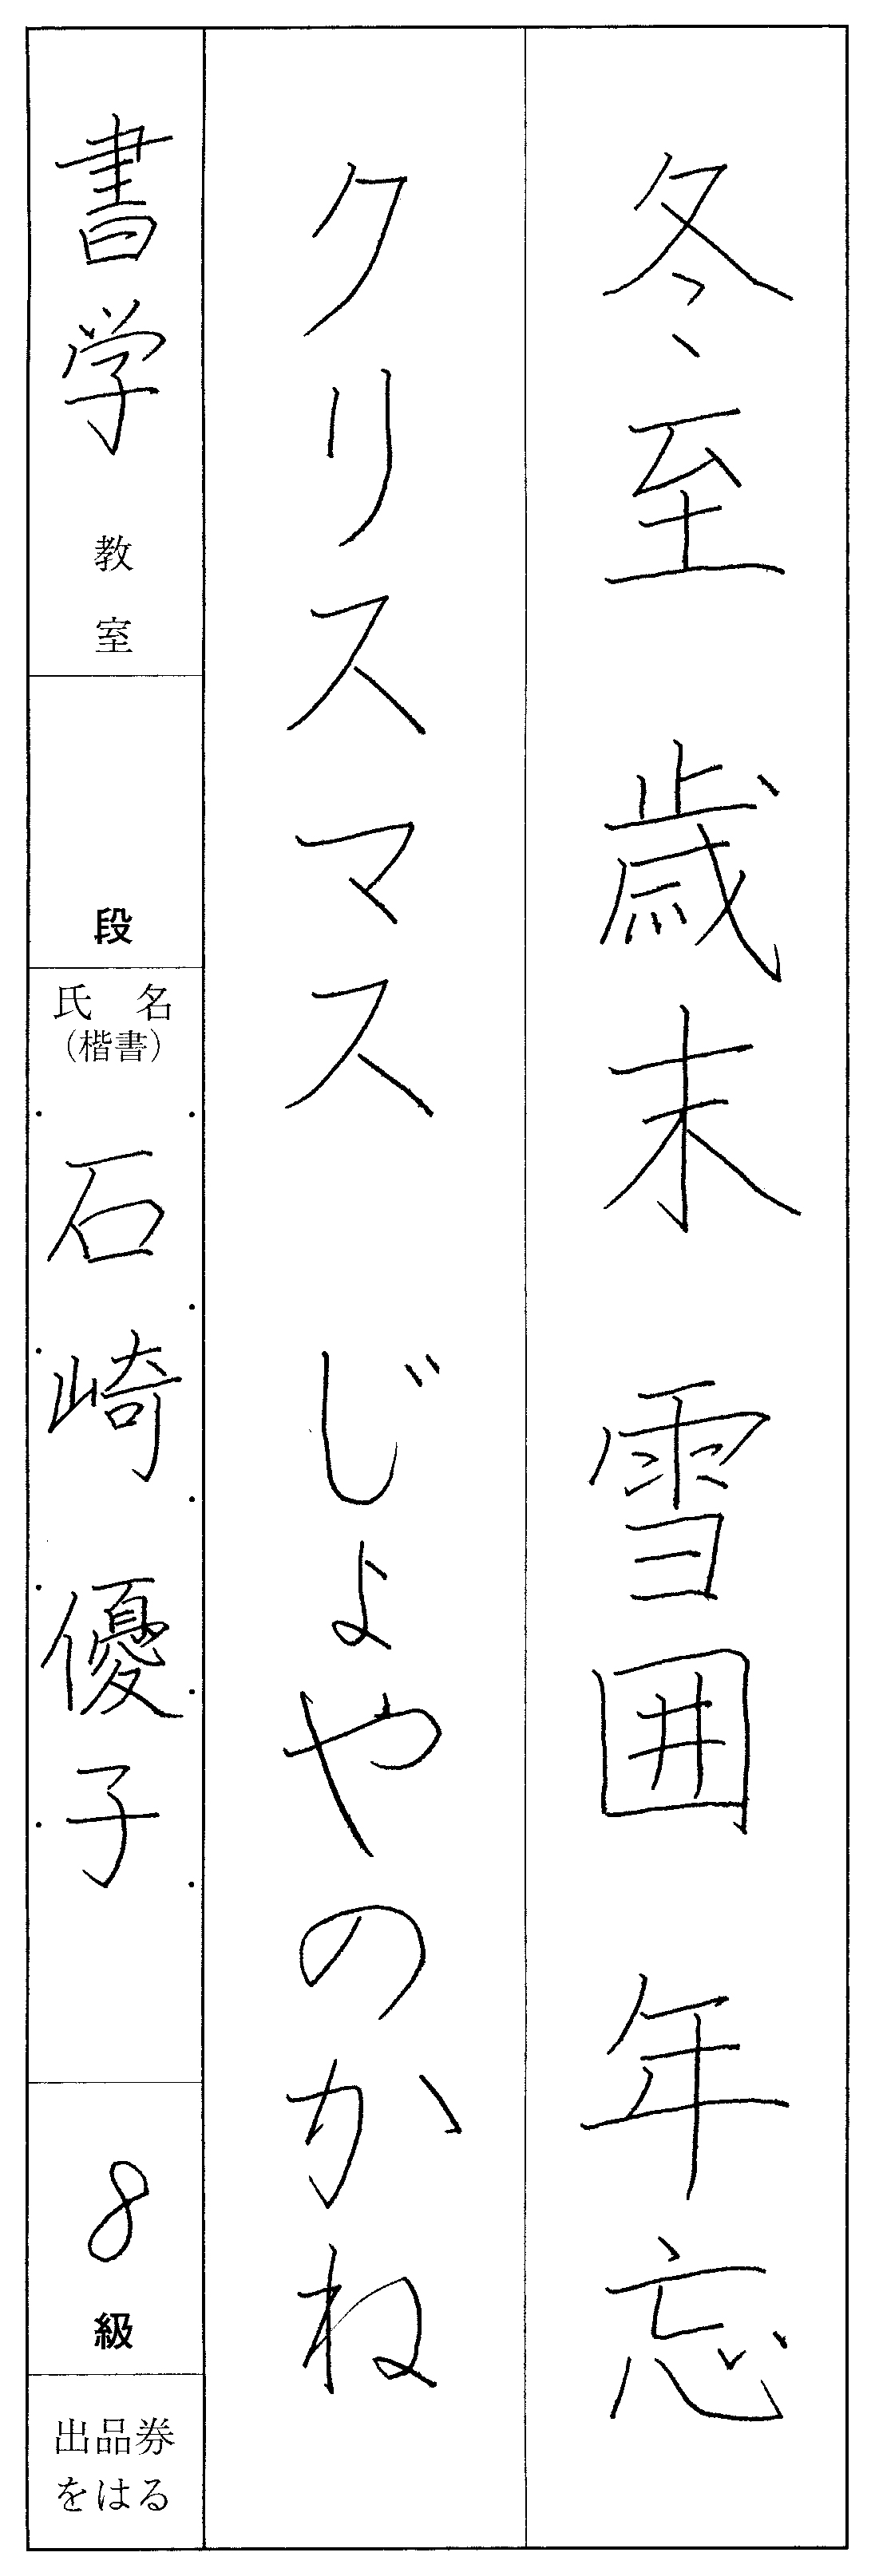 冬至 歳末 雪囲 年忘
クリスマス じょやのかね
書学教室
段
氏名
(楷書)
石崎優子
8級
出品券
をはる